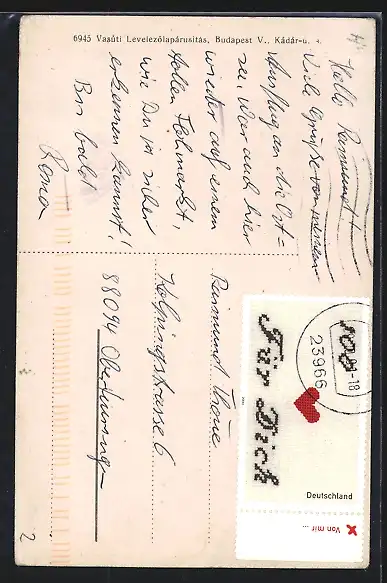 6945 Vasúti Levelezőlapárusítás, Budapest V., Kádár-u. 4.
Hallo Raimund!
Viele Grüße von meinem
Ausflug an die Ost=
see. War auch hier
wieder auf einem
tollen Flohmarkt,
wie Du ja sicher
erkennen kannst!
Bis bald
Rena
Raimund Thöne
Kolpingstrasse 6
88094 Oberteuringen
Für Dich
Deutschland
Von mir ...
23966
-18
2